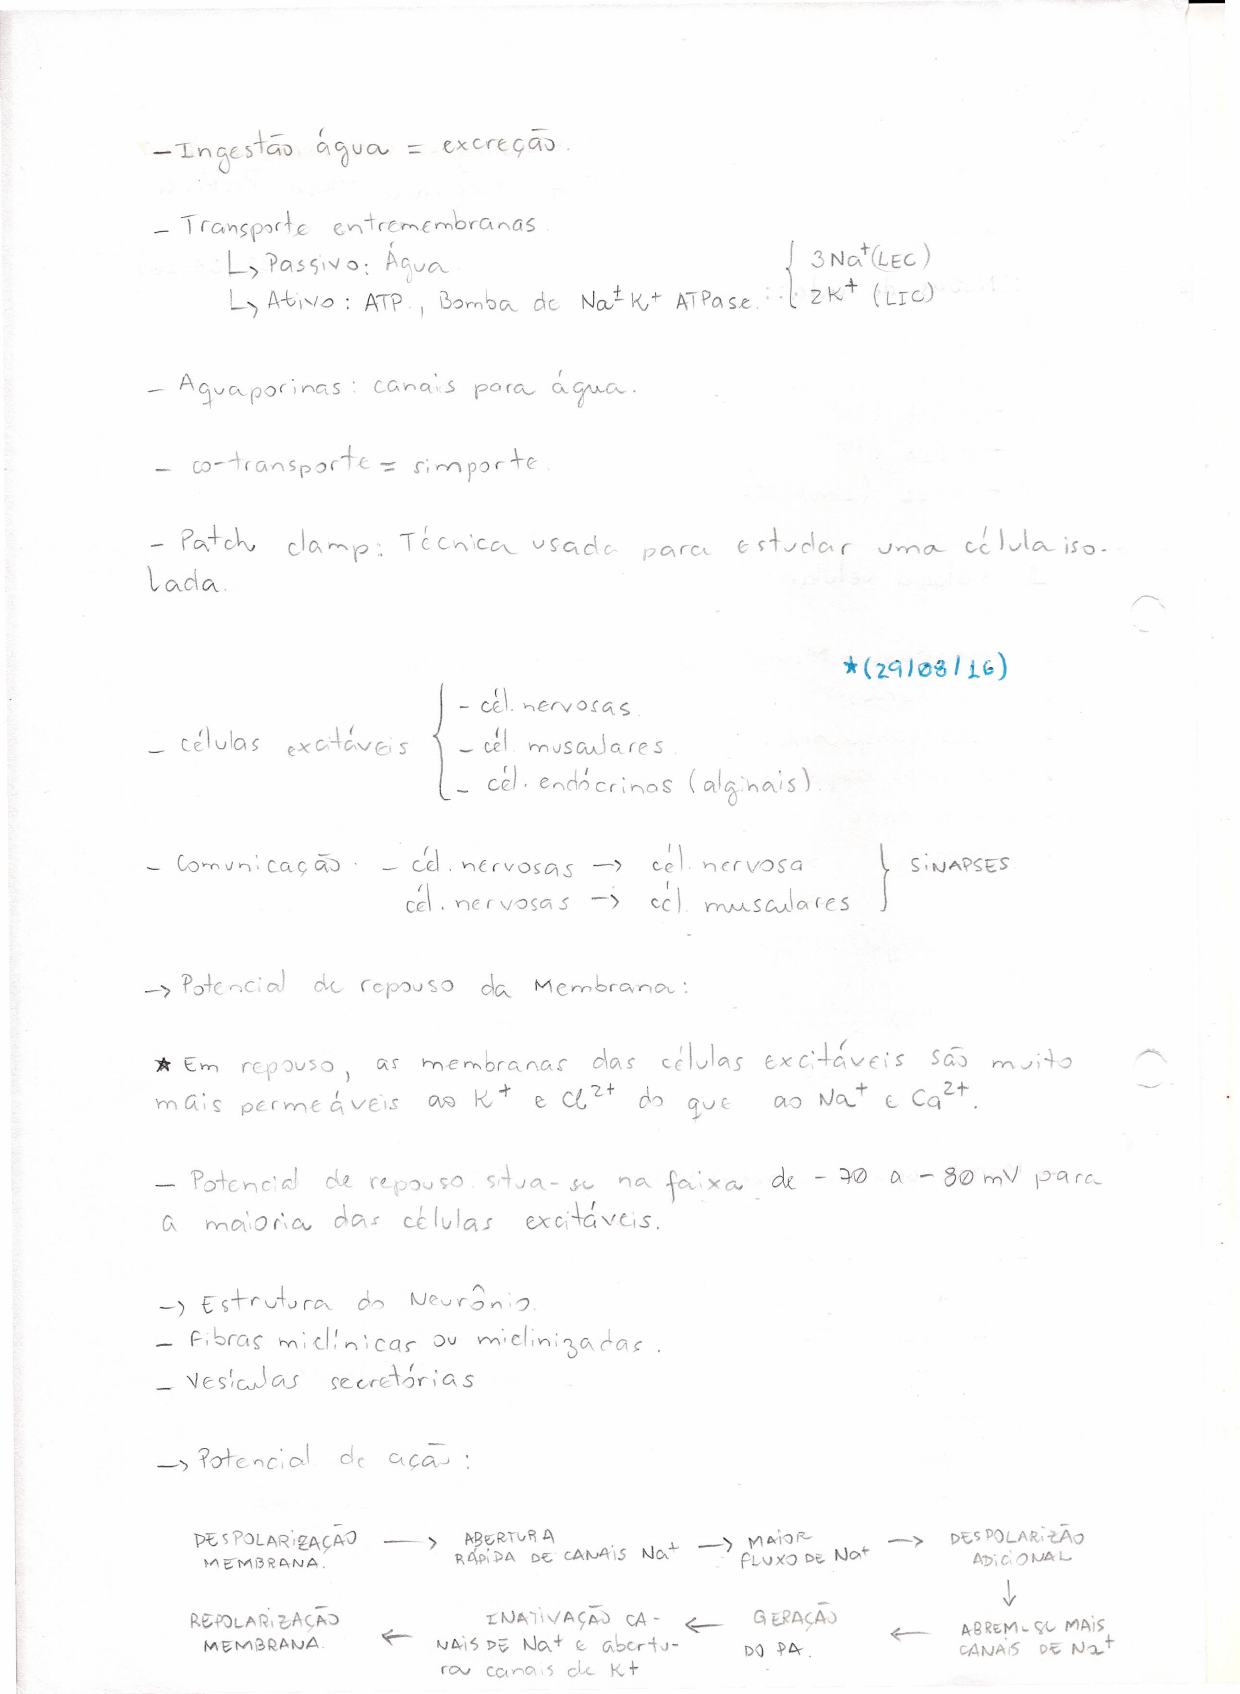 - Ingestão água = excreção.
- Transporte entremembranas
↳ Passivo: Água
↳ Ativo: ATP, Bomba de Na+ K+ ATPase: { 3Na+ (LEC)
2K+ (LIC)
- Aquaporinas: canais para água.
- co-transporte = simporte.
- Patch clamp: Técnica usada para estudar uma célula iso-
lada.
★(29/08/16)
- células excitáveis { - cél. nervosas
- cél. musculares
- cél. endócrinas (alginais).
- Comunicação. - cél. nervosas → cél. nervosa } SiNAPSES
cél. nervosas → cél. musculares
→ Potencial de repouso da Membrana:
★ Em repouso, as membranas das células excitáveis são muito
mais permeáveis ao K+ e Cl2+ do que ao Na+ e Ca2+.
- Potencial de repouso situa-se na faixa de -70 a -80 mV para
a maioria das células excitáveis.
→ Estrutura do Neurônio.
- Fibras mielínicas ou mielinizadas.
- Vesículas secretórias
→ Potencial de ação:
DESPOLARiZAÇÃO MEMBRANA. → ABERTURA RÁPIDA DE CANAiS Na+ → MAiOR FLUXO DE Na+ → DESPOLARiZÃO ADiCiONAL
↓
REPOLARiZAÇÃO MEMBRANA. ← INATiVAÇÃO CA-NAiS DE Na+ e abertu-ra canais de K+ ← GERAÇÃO DO PA. ← ABREM-SE MAiS CANAiS DE Na+